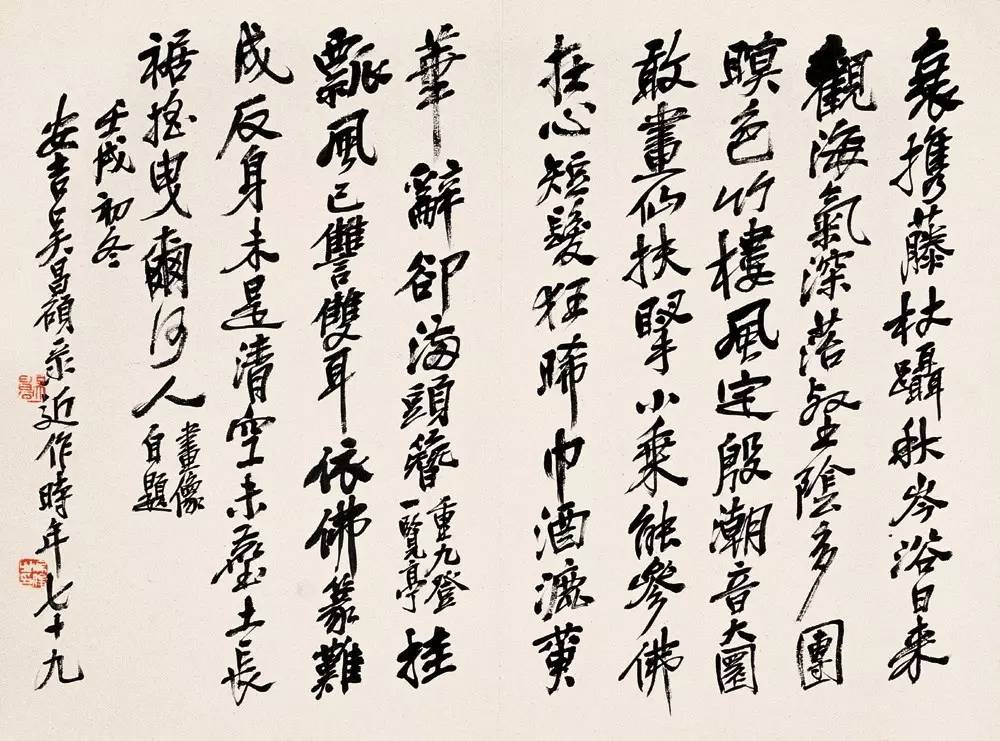 衰携藤杖躡秋岑浴日来
觀海氣深落壑陰多團
暝色竹樓風定殷潮音大圜
敢畫仙扶掔小乘能參佛
在心短髮狂晞巾酒漉黄
華辭卻海頭簪重九登一覽亭挂
瓢風已讐雙耳依佛篆難
成反身未是清空未塵土長
裾搖曳爾何人畫像自題
壬戌初冬
安吉吳昌碩录近作時年七十九